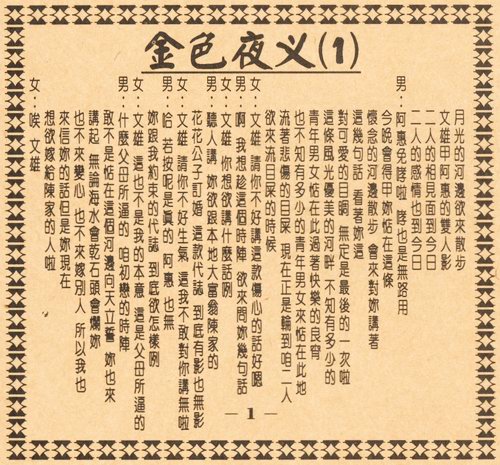 金色夜义(1)
月光的河邊欲來散步
文雄甲阿惠的雙人影
二人的相見面到今日
二人的感情也到今日
男：阿惠免哮啦 哮也是無路用
今晚會得甲妳惦在這條
懷念的河邊散步 會來對妳講著
這幾句話 看著妳這
對可愛的目睭 無定是最後的一次啦
這條風光優美的河畔 不知有多少的
青年男女惦在此過著快樂的良宵
也不知有多少的青年男女來惦在此地
流著悲傷的目屎 現在正是輪到咱二人
欲來流目屎的時候
女：文雄 請你不好講這款傷心的話好嗯
男：啊 我想趁這個時陣 欲來問妳幾句話
女：文雄 你想欲講什麼話咧
男：聽人講 妳欲跟本地大富翁陳家的
花花公子訂婚 這款代誌 到底有影也無影
女：文雄 請你不好生氣 這我不敢對你講無啦
男：恰 若按呢是真的 阿惠 也無
妳跟我約束的代誌 到底欲怎樣咧
女：文雄 這也不是我的本意 這是父母所逼的
男：什麼父母所逼的 咱初戀的時陣
敢不是惦在這個河邊向天立誓 妳也來
講起 無論海水會乾石頭會爛 妳
也不來變心 也不來嫁別人 所以我也
來信妳的話但是妳現在
想欲嫁給陳家的人啦
女：唉 文雄
－1－